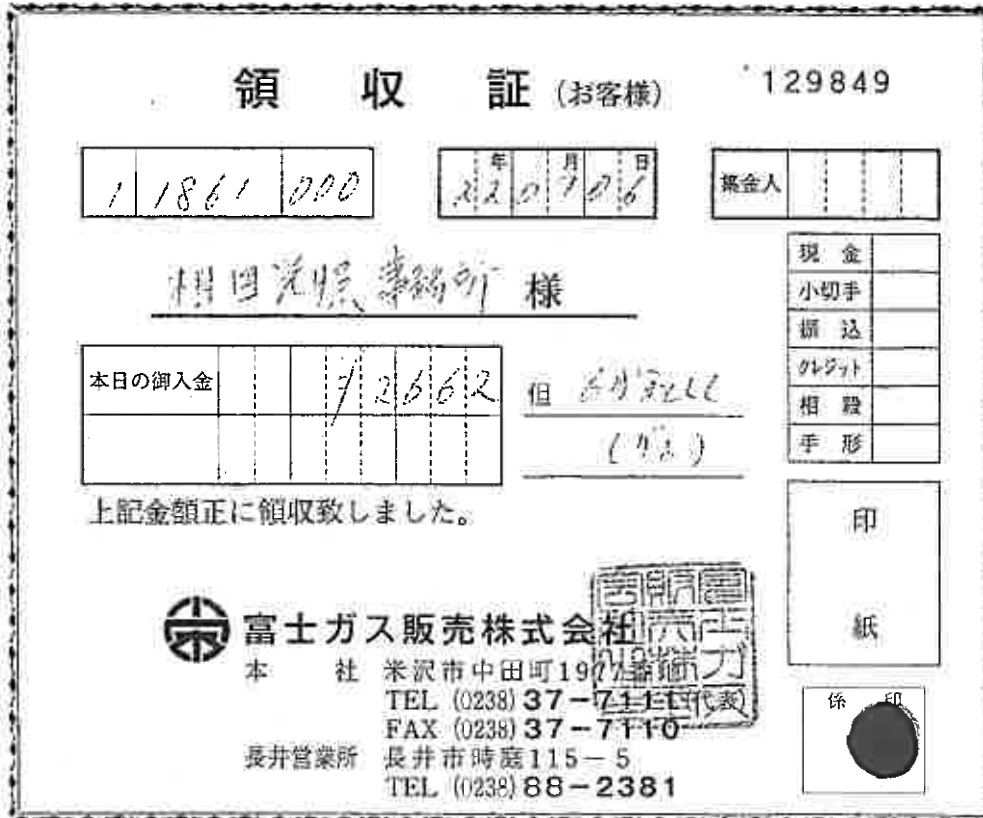 領収証(お客様) 129849
1 1861 000
年 月 日
22 07 06
集金人
現金
小切手
振込
クレジット
相殺
手形
事務所 様
本日の御入金 12662
但
(ガス)
上記金額正に領収致しました。
印紙
富士ガス販売株式会社
本社 米沢市中田町1977番
TEL (0238) 37-7111 代表
FAX (0238) 37-7110
長井営業所 長井市時庭115-5
TEL (0238) 88-2381
係印